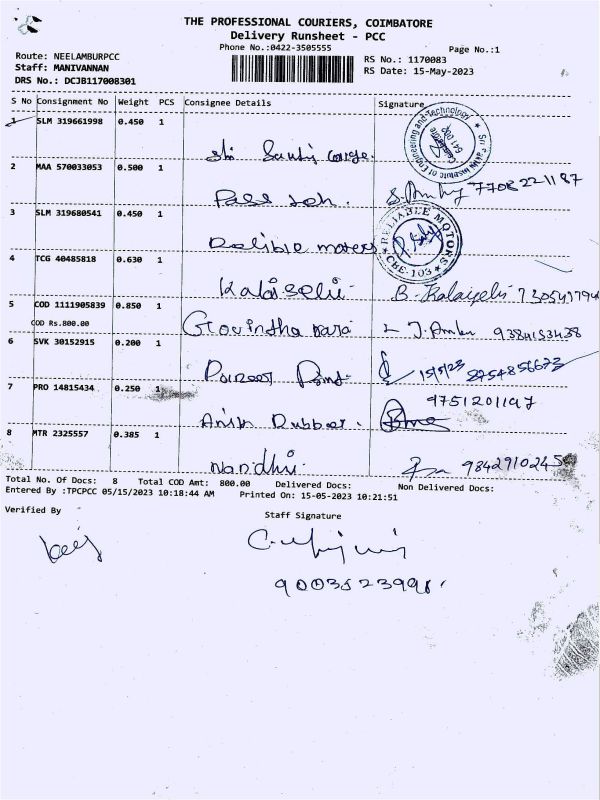 THE PROFESSIONAL COURIERS, COIMBATORE
Delivery Runsheet - PCC
Phone No.:0422-3505555
Page No.:1
Route: NEELAMBURPCC
Staff: MANIVANNAN
DRS No.: DCJB117008301
RS No.: 1170083
RS Date: 15-May-2023
S No Consignment No Weight PCS Consignee Details Signature
1 SLM 319661998 0.450 1
Sri
2 MAA 570033053 0.500 1
7708221187
3 SLM 319680541 0.450 1
RELIABLE MOTORS
CBE-103
4 TCG 40485818 0.630 1
Kalaiselvi
B. Kalaiselvi
5 COD 1111905839 0.850 1
COD Rs.800.00
Govintharaj 9384153438
6 SVK 30152915 0.200 1
15/5/23 8754856673
7 PRO 14815434 0.250 1
9751201197
Rubber.
8 MTR 2325557 0.385 1
Nandhi. 9842910245
Total No. Of Docs: 8 Total COD Amt: 800.00 Delivered Docs: Non Delivered Docs:
Entered By :TPCPCC 05/15/2023 10:18:44 AM Printed On: 15-05-2023 10:21:51
Verified By
Staff Signature